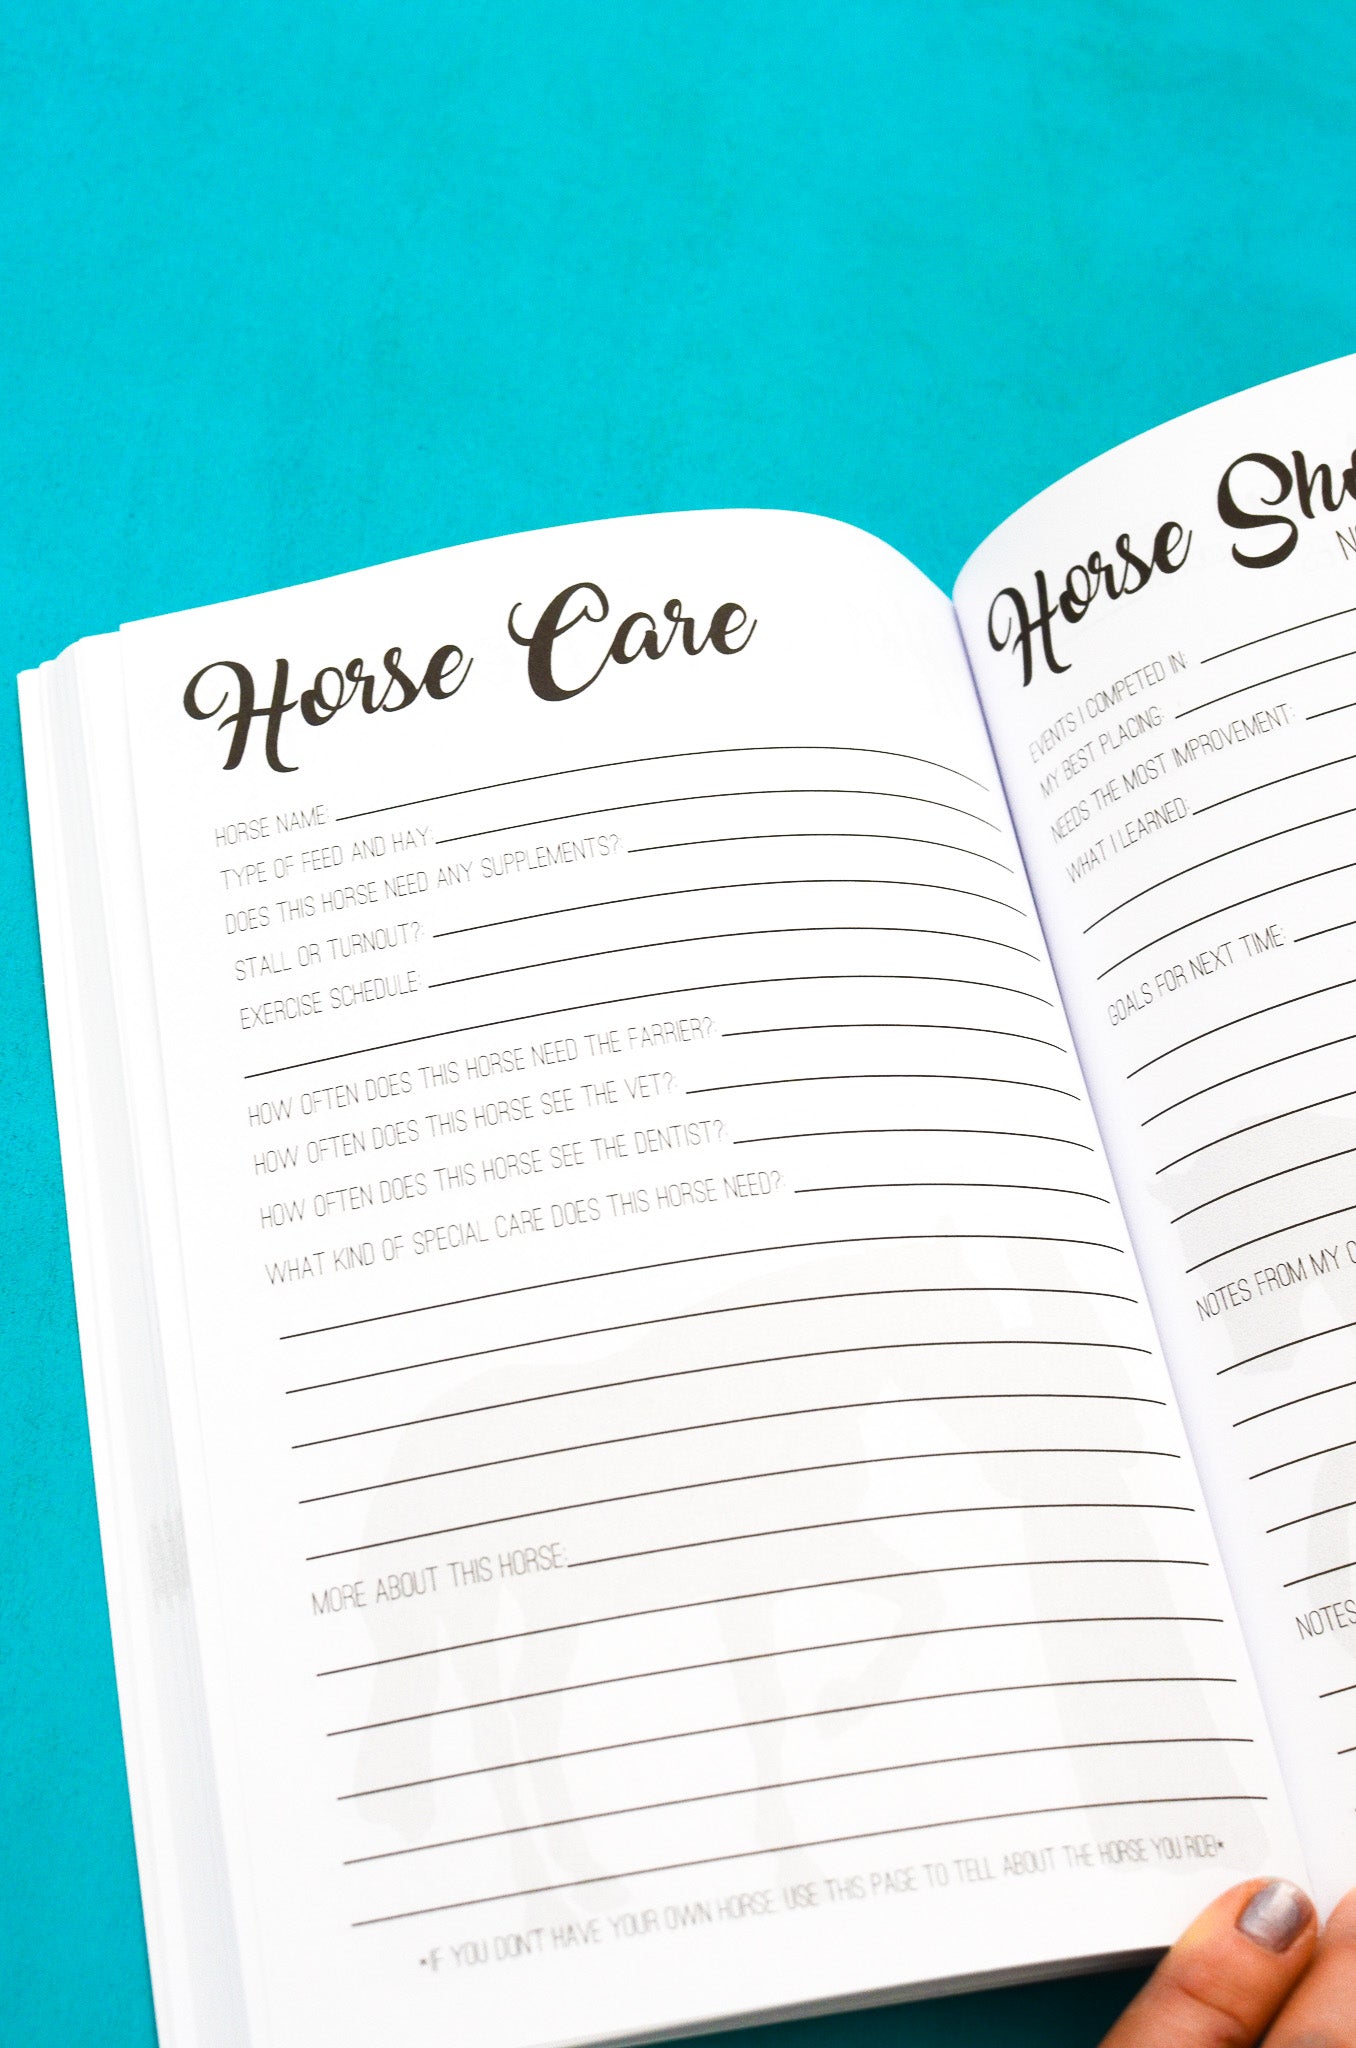 Horse Care
HORSE NAME:
TYPE OF FEED AND HAY:
DOES THIS HORSE NEED ANY SUPPLEMENTS?:
STALL OR TURNOUT?:
EXERCISE SCHEDULE:
HOW OFTEN DOES THIS HORSE NEED THE FARRIER?:
HOW OFTEN DOES THIS HORSE SEE THE VET?:
HOW OFTEN DOES THIS HORSE SEE THE DENTIST?:
WHAT KIND OF SPECIAL CARE DOES THIS HORSE NEED?:
MORE ABOUT THIS HORSE:
*IF YOU DON'T HAVE YOUR OWN HORSE, USE THIS PAGE TO TELL ABOUT THE HORSE YOU RIDE!*
Horse
EVENTS I COMPETED IN:
MY BEST PLACING:
NEEDS THE MOST IMPROVEMENT:
WHAT I LEARNED:
GOALS FOR NEXT TIME:
NOTES FROM MY
NOTES